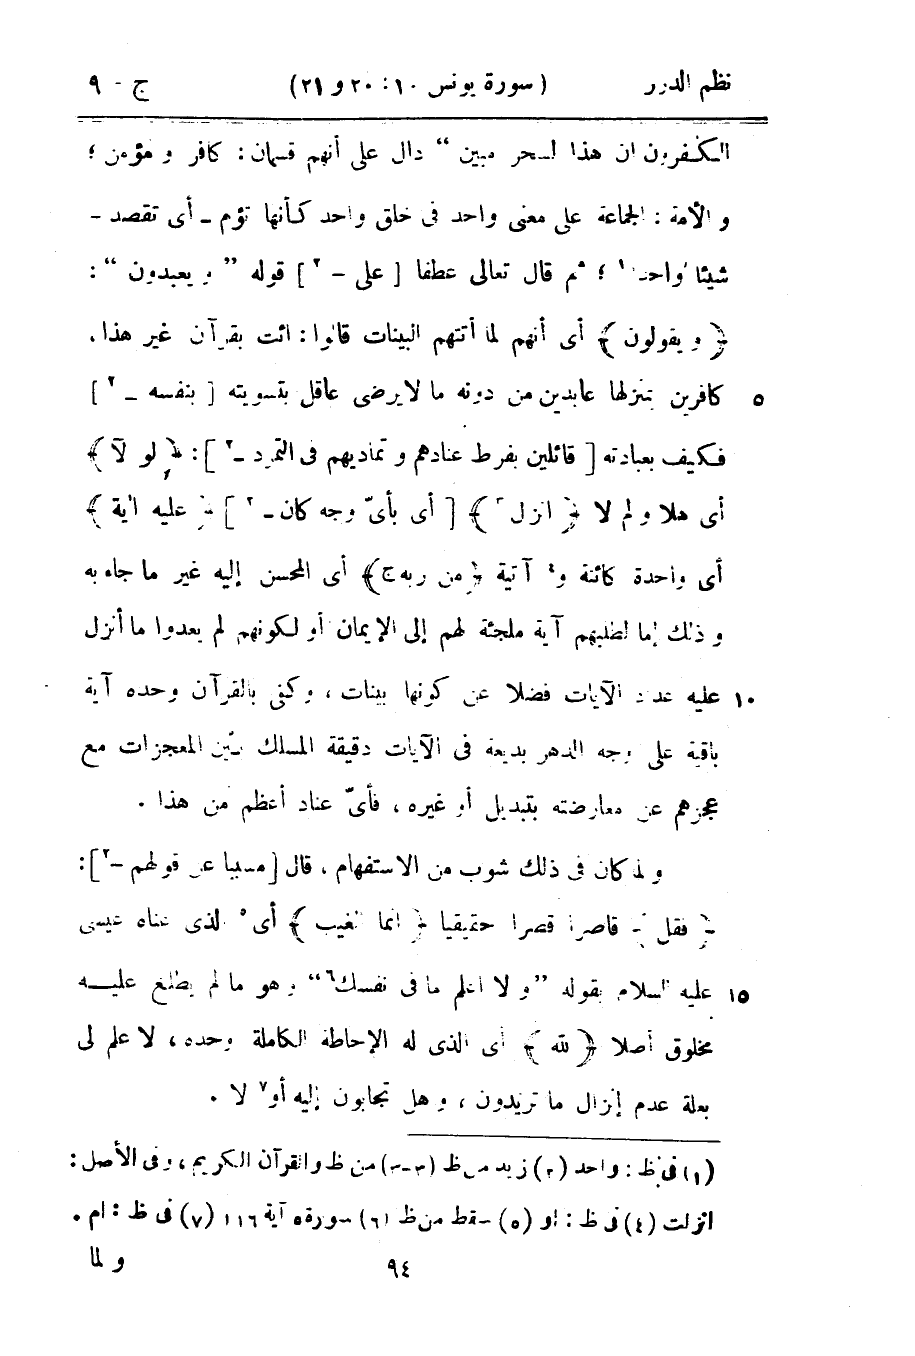 نظم الدرر (سورة يونس ١٠ : ٢٠ و ٢١) ج - ٩
الكٰفرون ان هذا لسحر مبين “ دال على أنهم قسمان : كافر و مؤمن ؛
و الأمة : الجماعة على معنى واحد فى خلق واحد كأنها تؤم ـ أى تقصد -
شيئا واحدا ١ ؛ ثم قال تعالى عطفا [ على - ٢ ] قوله ” و يعبدون “ :
﴿ و يقولون ﴾ أى أنهم لما أتتهم البينات قالوا : ائت بقرآن غير هذا ،
٥ كافرين بمنزلها عابدين من دونه ما لا يرضى عاقل بتسويته [ بنفسه ـ ٢ ]
فكيف بعبادته [ قائلين بفرط عنادهم و تماديهم فى التمرد ـ ٢ ] : ﴿ لو لآ ﴾
أى هلا و لم لا ﴿ انزل ٣ ﴾ [ أى بأىّ وجه كان - ٢ ] ﴿ عليه اٰية ﴾
أى واحدة كائنة و ٤ آتية ﴿ من ربه ج ﴾ أى المحسن إليه غير ما جاء به
و ذلك إما لطلبهم آية ملجئة لهم إلى الإيمان أو لكونهم لم يعدوا ما أنزل
١٠ عليه عدد الآيات فضلا عن كونها بينات ، وكفى بالقرآن وحده آية
باقية على وجه الدهر بديعة فى الآيات دقيقة المسلك بين المعجزات مع
عجزهم عن معارضته بتبديل أو غيره ، فأىّ عناد أعظم من هذا .
و لما كان فى ذلك شوب من الاستفهام ، قال [ مسببا عن قولهم - ٢ ] :
﴿ فقل ﴾ قاصرا قصرا حقيقيا ﴿ انما الغيب ﴾ أى ٥ الذى عناه عيسى
١٥ عليه السلام بقوله ” و لا اعلم ما فى نفسك ٦ “ وهو ما لم يطلع عليه
مخلوق أصلا ﴿ لله ﴾ أى الذى له الإحاطة الكاملة وحده ، لا علم لى
بعلة عدم إنزال ما تريدون ، و هل تجابون إليه أو ٧ لا .
(١) فى ظ : واحد (٢) زيد من ظ (٣-٣) من ظ والقرآن الكريم ، وفى الأصل :
انزلت (٤) فى ظ : او (٥) سقط من ظ (٦) سورة ٥ آية ١١٦ (٧) فى ظ : ام .
٩٤ و لما